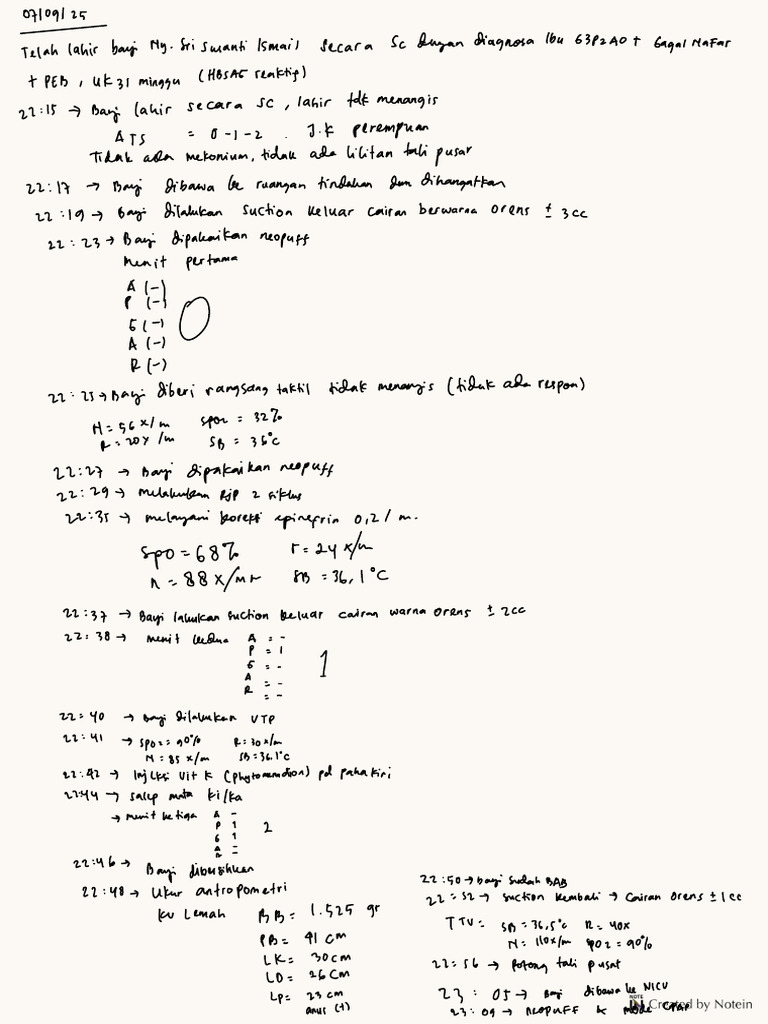 07/09/25
Telah lahir bayi Ny. Sri Suwanti Ismail secara SC dengan diagnosa Ibu G3P2A0 + Gagal NaFar
+ PEB, UK 31 minggu (HBSAG reaktif)
22:15 → Bayi lahir secara SC, lahir tdk menangis
ATS = 0-1-2 . J.K perempuan
Tidak ada mekonium, tidak ada lilitan tali pusar
22:17 → Bayi dibawa ke ruangan tindakan dan dihangatkan
22:19 → Bayi dilakukan suction keluar cairan berwarna orens ± 3cc
22:23 → Bayi dipakaikan neopuff
Menit pertama
A (-)
P (-)
G (-) 0
A (-)
R (-)
→ Bayi diberi rangsang taktil tidak menangis (tidak ada respon)
N = 56x/m spo2 = 32%
R = 20x/m SB = 36°c
22:27 → Bayi dipakaikan neopuff
22:29 → melakukan RJP 2 siklus
22:35 → melayani koreksi epinefrin 0,2/m.
spo = 68% r = 24x/m
n = 88x/m SB = 36,1°C
22:37 → Bayi lakukan suction keluar cairan warna orens ± 2cc
22:38 → menit kedua A = -
P = 1
G = - 1
A = -
R = -
22:40 → Bayi dilakukan VTP
22:41 → spo2 = 90% R = 30x/m
N = 85x/m SB = 36.1°c
22:42 → Injeksi Vit K (Phytomenadion) pd paha kiri
22:44 → salep mata ki/ka
→ menit ketiga A -
P 1
G 1 2
A -
R -
22:46 → Bayi dibersihkan
22:48 → Ukur antropometri
KU Lemah BB = 1.525 gr
PB = 41 cm
LK = 30cm
LD = 26cm
LP = 23cm
anus (+)
22:50 → bayi sudah BAB
22:52 → suction kembali → cairan orens ± 1cc
TTV = SB = 36,5°c R = 40x
N = 110x/m spo2 = 90%
22:56 → Potong tali pusat
23:05 → Bayi dibawa ke NICU
23:09 → NEOPUFF & mode CPAP
Created by Notein